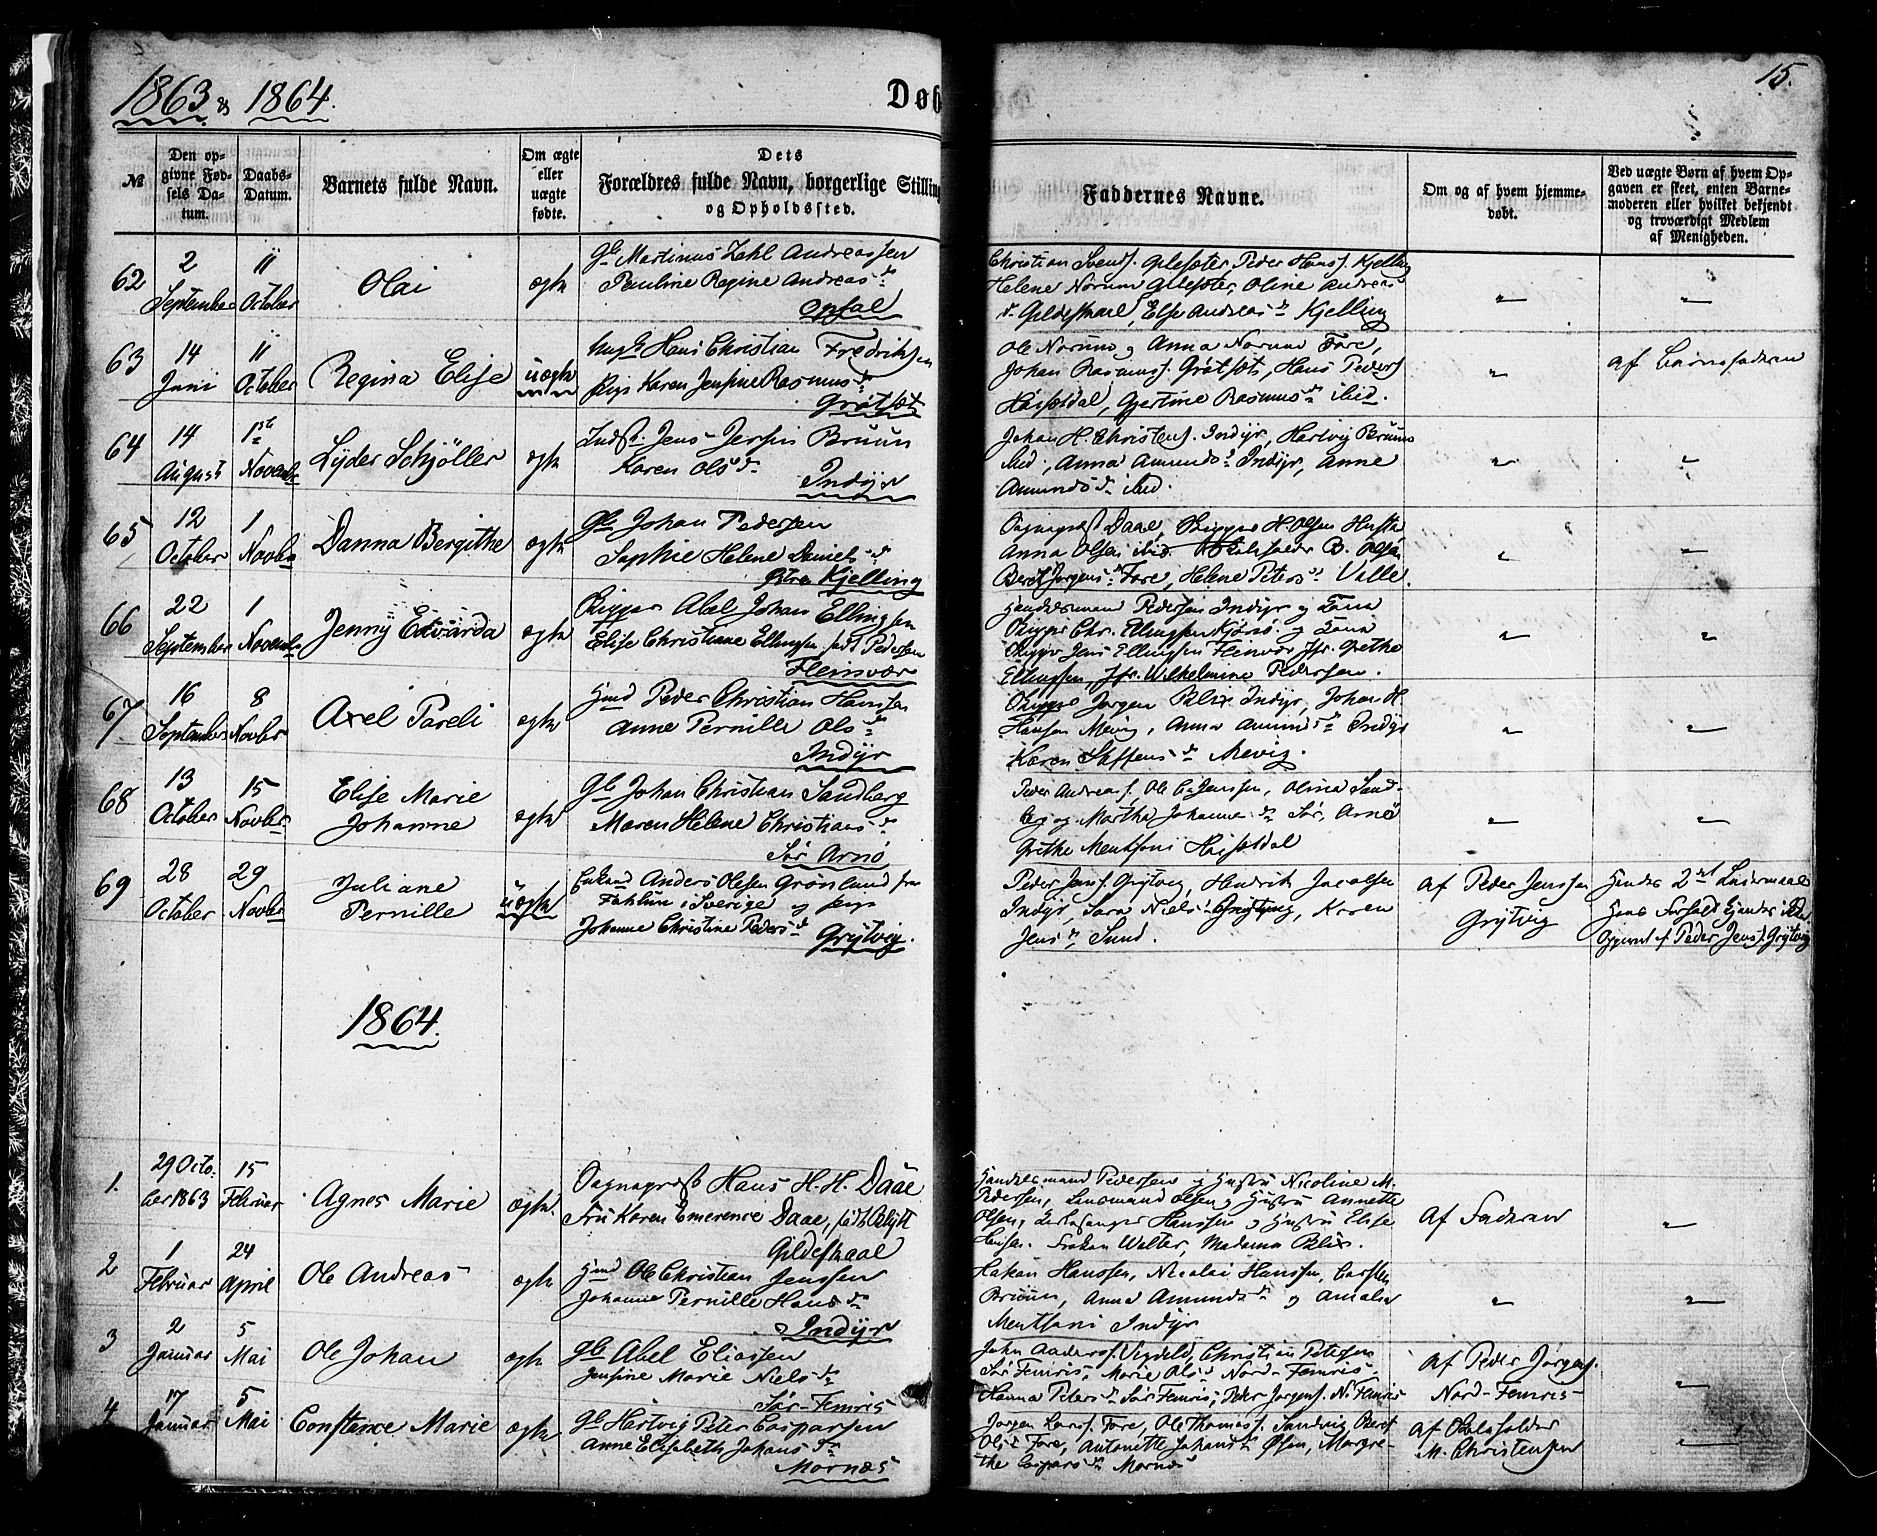 1863 & 1864.
Døb
15.
№
Den op-
givne Fød-
sels Da-
tum.
Daabs-
Datum.
Barnets fulde Navn.
Om ægte
eller
uægte
fødte.
Dets
Forældres fulde Navn, borgerlige Stilling
og Opholdssted.
Faddernes Navne.
Om og af hvem hjemme-
døbt.
Ved uægte Børn af hvem Op-
gaven er skeet, enten Barne-
moderen eller hvilket bekjendt
og troværdigt Medlem
af Menigheden.
62
2
September
11
October
Olai
ægte
Gb Martinus Zahl Andreassen
Pauline Regine Andreasdr
Opsal
Christian Svends. Gilesæter, Peder Hans. Kjelling
Helene Norum Gilesæter, Oline Andreas
dr Gildeskaal, Else Andreasdr Kjelling
"
"
63
14
Juni
11
October
Regina Elise
uægte
Ungk Hans Christian Fredriksen
Pige Karen Jensine Rasmusdr
Grøtset
Ole Norum og Anna Norum Fore,
Johan Rasmuss. Grøtset, Hans Peders
Høiseldal, Gjertine Rasmusdr ibid.
"
af Barnefaderen
64
14
August
1st
Novembr
Lyder Schjöller
ægte
Indst. Jens Jersin Bruun
Karen Olsdr
Indyr
Johan H. Christens. Indyr, Hartvig Bruun
ibid, Anna Amundsd. Indyr, Anne
Amundsdr ibid.
"
"
65
12
October
1
Novbr
Danna Bergithe
ægte
Gb Johan Pedersen
Sophie Helene Danielsdr
Øvre Kjelling
Sognepræst Daae, Skipper H Olsen
Anna Olsen ibid. B. Olsen
Beret Jørgensdr Fore, Helene Petersdr Ville.
"
"
66
22
September
1
Novembr
Jenny Edvarda
ægte
Skipper Abel Johan Ellingsen
Elise Christiane Ellingsen født Pedersen
Fleinvær
Handelsmand Pedersen Indyr og Kona
Skipper Chr. Ellingsen og Kona
Skipper Jens Ellingsen Fleinvær Jfr. Grethe
Ellingsen, Jfr. Wilhelmine Pedersen.
"
"
67
16
September
8
Novbr
Axel Pareli
ægte
Hmd Peder Christian Hansen
Anne Pernille Olsdr
Indyr
Skipper Jørgen Blix Indyr, Johan H.
Hansen Mevig, Anna Amundsdr Indyr
Karen Staffensdr Mevig.
"
"
68
13
October
15
Novbr
Elise Marie
Johanne
ægte
Gb Johan Christian Sandberg
Maren Helene Christiansdr
Sør Arnø
Peder Andreass. Ole C. Jenssen, Olina Sand-
berg og Martha Johannesdr Sør. Arnø
Grethe Mentsoni Høiseldal
"
"
69
28
October
29
Novbr
Juliane
Pernille
uægte
Enkemd Anders Olsen Grønlund fra
Fahlun i Sverige og Pige
Johanne Christine Pedersdr
Grytvig.
Peder Jenss. Grytvig, Hendrik Jacobsen
Indyr, Sara Nielsd Grytvig, Karen
Jensdr Sund.
af Peder Jenssen
Grytvig
Hendes 2det Leiermaal
Hans Forhold kjendes ikke
Opgivet af Peder Jenss. Grytvig
1864.
1.
29 Octo-
ber 1863
15
Februar
Agnes Marie
ægte.
Sognepræst Hans H. H. Daae
Fru Karen Emerence Daae, født Blytt
Gildeskaal
Handelsmand Pedersen og Hustru Nicoline M.
Pedersen, Lensmand Olsen og Hustru Annette
Olsen, Kirkesanger Hanssen og Hustru Elise
Hansen. Frøken Walter, Madame Blix.
Af Faderen
"
2
1
Februar
24
April
Ole Andreas
ægte
Hmd Ole Christian Jenssen
Johanne Pernille Hansdr
Indyr
Hakan Hanssen, Nicolai Hanssen, Carsten
Bruun, Anna Amundsdr og Amalia
Mentsoni Indyr
"
"
3
2
Januar
5
Mai
Ole Johan
ægte
Gb Abel Eliassen
Jensine Marie Nielsdr
Sør-Femris
John Anders. Christian Petersen
Sør Femris, Marie Olsd Nord-Femris
Hanna Petersdr Sør Femris, Peder Jørgens. N. Femris
Af Peder Jørgens.
Nord-Femris
"
4
17
Januar
5
Mai
Constance Marie
ægte
Gb Hartvig Peter Casparsen
Anne Elisabeth Johansdr
Mornes
Jørgen Larss. Fore, Ole Thomass. Sandvig, Beret
Olsd Fore, Antonette Johansdr Øsen, Margre-
the Caspersdr Mornes
Af Skoleholder
M. Christensen
"